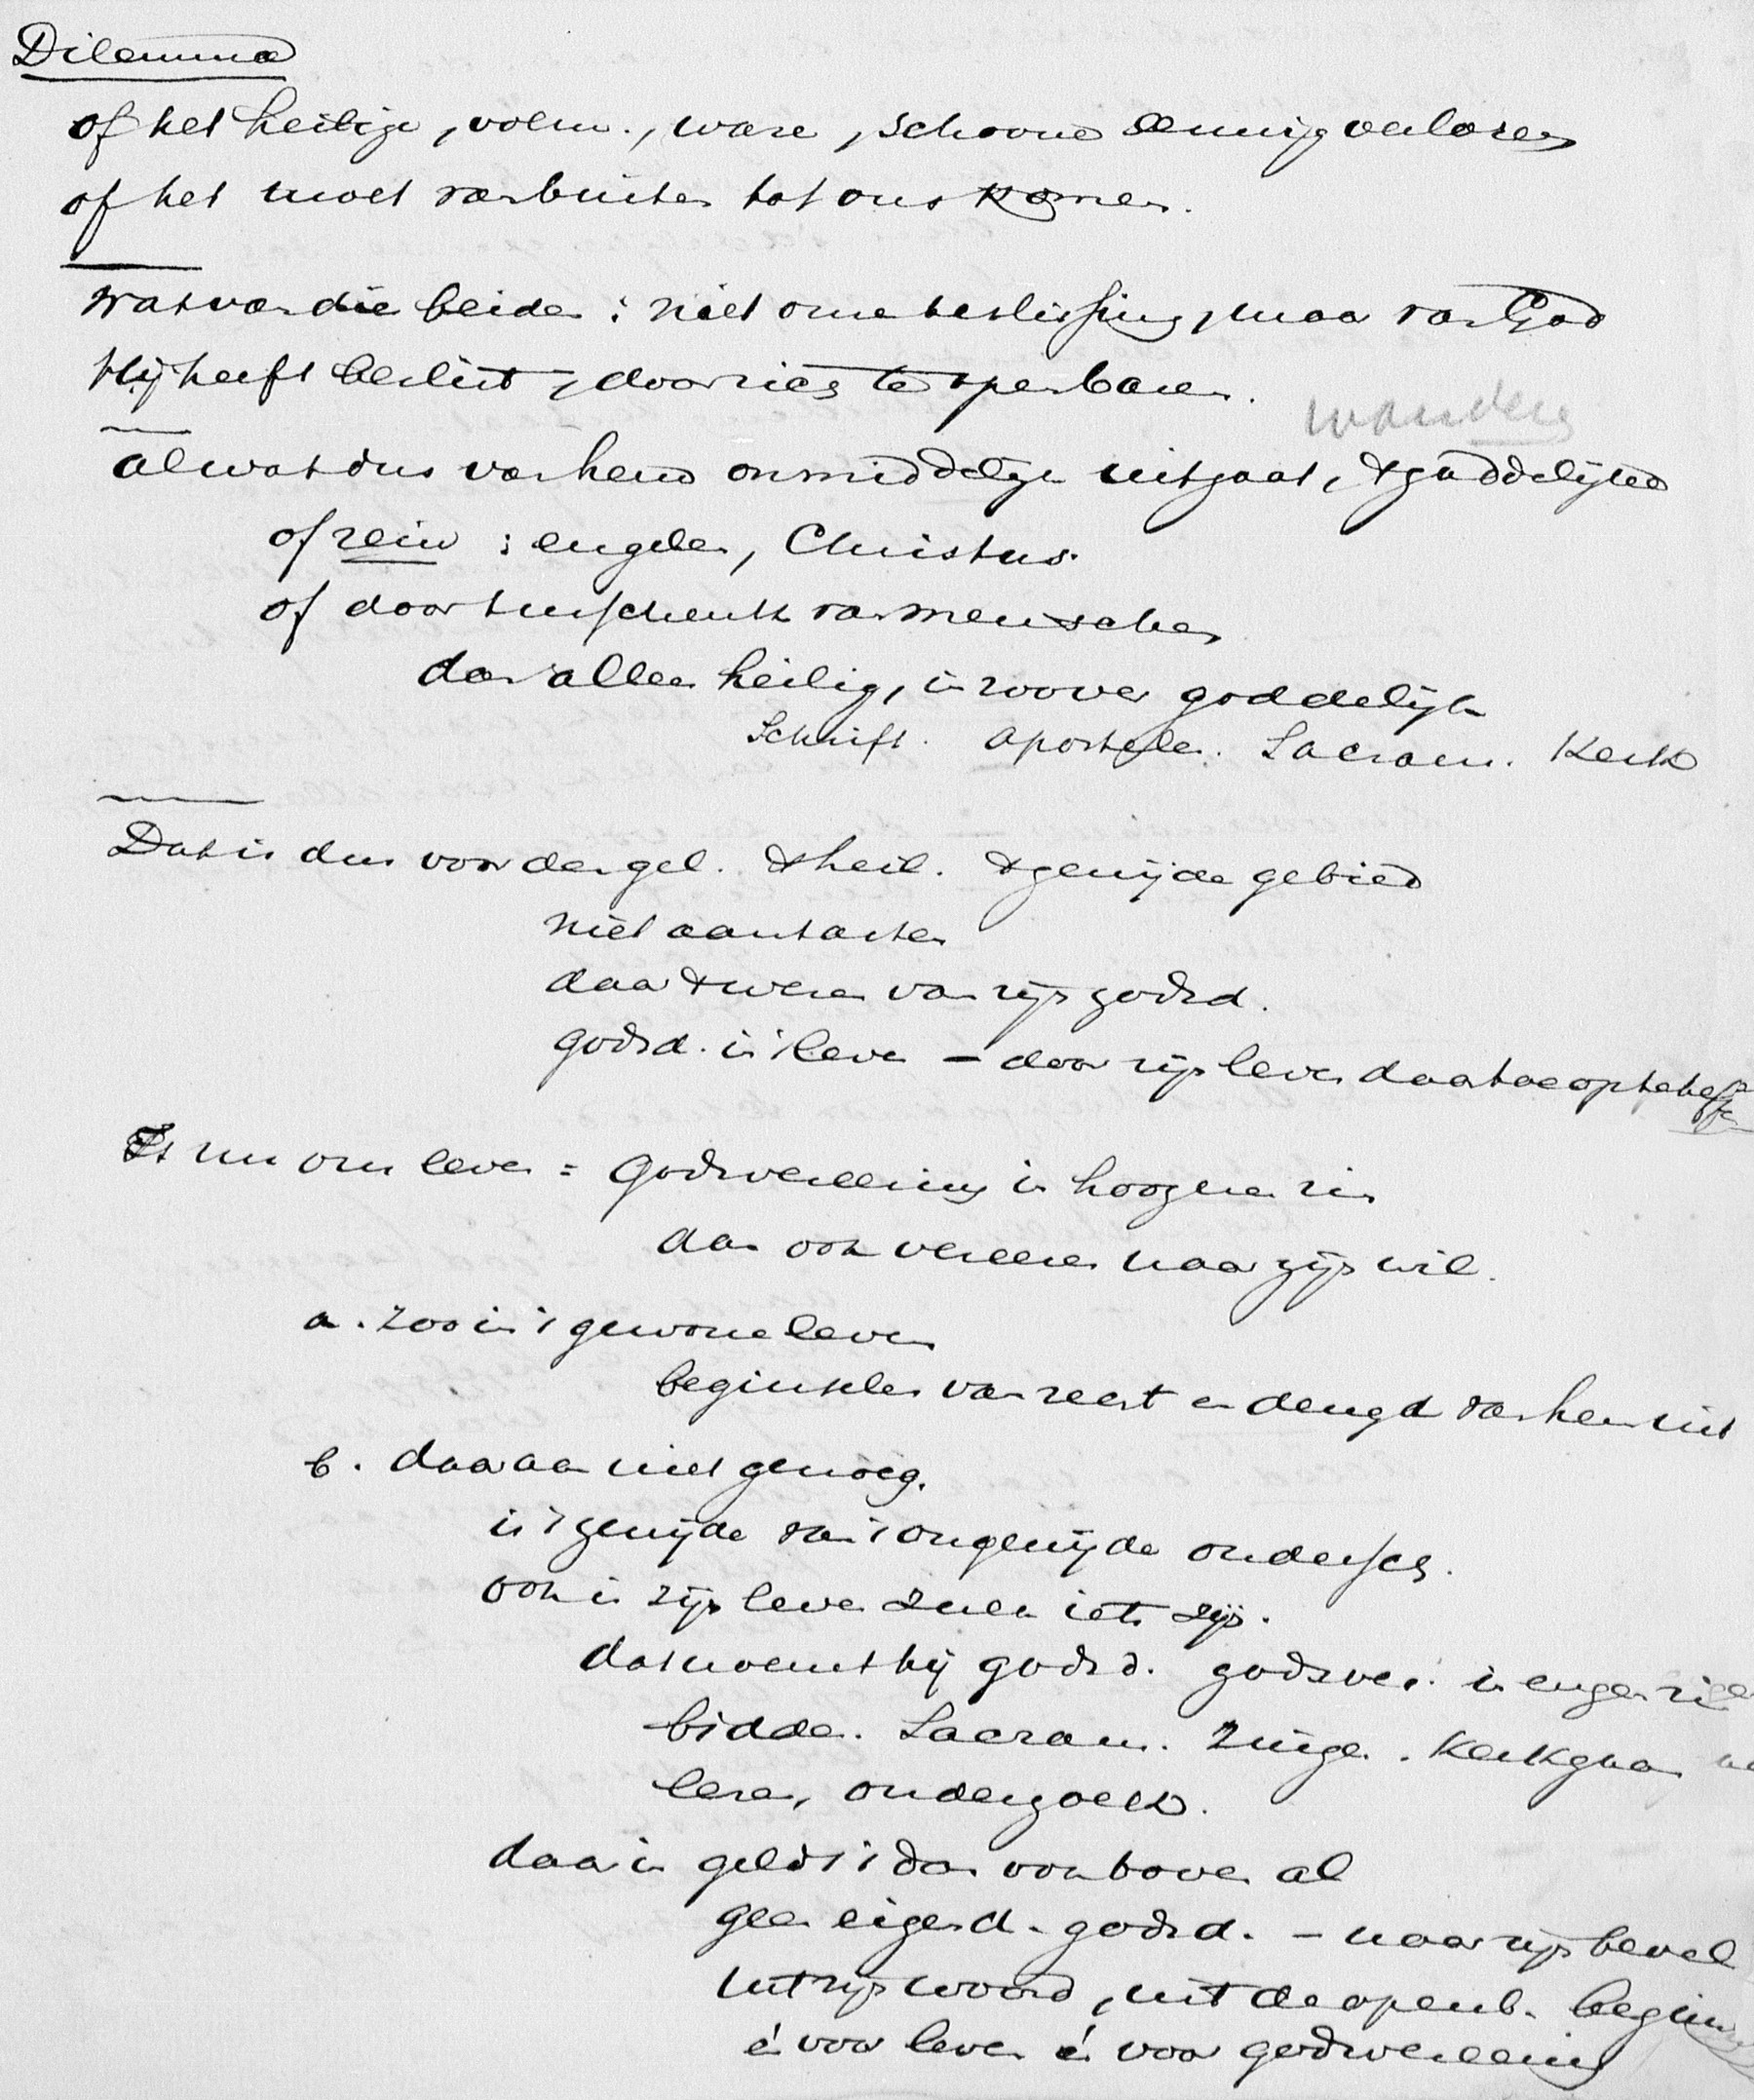 Dilemma
of het heilige, volm., ware, schoone eeuwig verloren
of het moet van buiten tot ons komen.
wat van die beiden: niet onze beslissing, maar van God
Hij heeft beslist, door zich te openbaren.
wonderen
al wat dus van hem onmiddelijk uitgaat, 't goddelijke
of rein: engelen, Christus.
of door tusschenk van menschen
dan alleen heilig, in zoover goddelijk
Schrift. Apostelen. Sacram. Kerk
Dat is dus voor den gel. 't heil. 't gewijde gebied
niet aantasten
daar 't wezen van zijn godsd.
godsd. in 't leven — door zijn leven daartoe op te heffen
Is nu ons leven = godsvereering in hoogeren zin
dan ook vereeren naar zijn wil.
a. zoo in 't gewone leven
beginselen van recht en deugd van hem uit
b. daaraan niet genoeg.
is 't gewijde van 't ongewijde ondersch.
ook in zijn leven zulk iets zijn.
dat noemt hij godsd. godsver. in engeren zin
bidden. Sacram. Zingen. Kerkgaan
lezen, onderzoek.
daarin geldt 't dan vooral boven al
geen eigend. godsd. — naar zijn bevel
uit zijn woord, uit de openb. begin
én voor leven én voor godsvereering